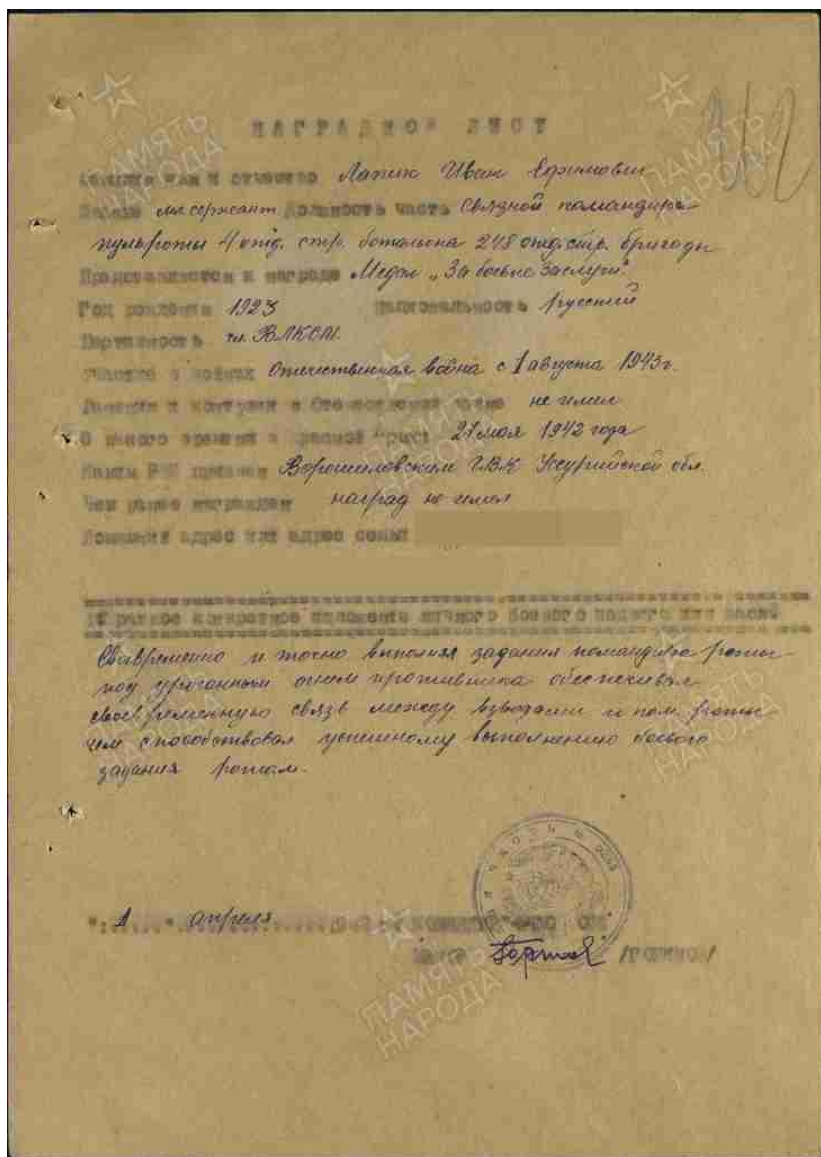 362
НАГРАДНОЙ ЛИСТ
Фамилия имя и отчество Лапик Иван Ефимович
Звание мл. сержант Должность часть Связной командира
пульроты 4 отд. стр. батальона 248 отд. стр. бригады
Представляется к награде Медал „За боевые заслуги".
Год рождения 1923 Национальность русский
Партийность чл. ВЛКСМ.
участие в войнах Отечественная война с 1 августа 1943 г.
Ранения и контузии в Отечественной войне не имел
С какого времени в Красной Армии 27 мая 1942 года
Каким РВК призван Ворошиловским ГВК Уссурийской обл.
Чем ранее награжден наград не имел
Домашний адрес или адрес семьи
краткое конкретное изложение личного боевого подвига или заслуг
Своевременно и точно выполняя задания командира роты
под ураганным огнем противника обеспечивал
своевременную связь между взводами и ком. роты
чем способствовал успешному выполнению боевого
задания ротам.
"1" апреля
ПАМЯТЬ НАРОДА
ПАМЯТЬ НАРОДА
ПАМЯТЬ НАРОДА